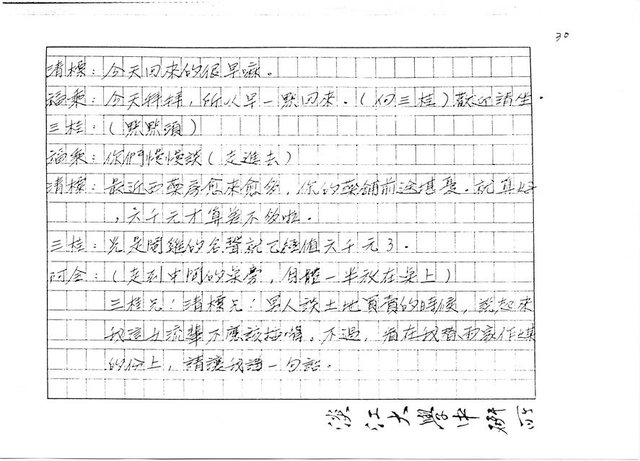 30
清標：今天回來的很早嘛。
福樂：今天拜拜，所以早一點回來。（向三桂）歡迎請坐。
三桂：（點點頭）
福樂：你們慢慢談（走進去）
清標：最近西藥房愈來愈多，你的藥舖前途堪憂。就算好
，六千元才算差不多啦。
三桂：光是開雞的名聲就已經值六千元了。
阿金：（走到中間的桌旁，身體一半放在桌上）
三桂兄！清標兄！男人談土地買賣的時候，說起來
我這女流輩不應該插嘴。不過，看在我替兩家作媒
的份上，請讓我講一句話。
淡江大學中研所